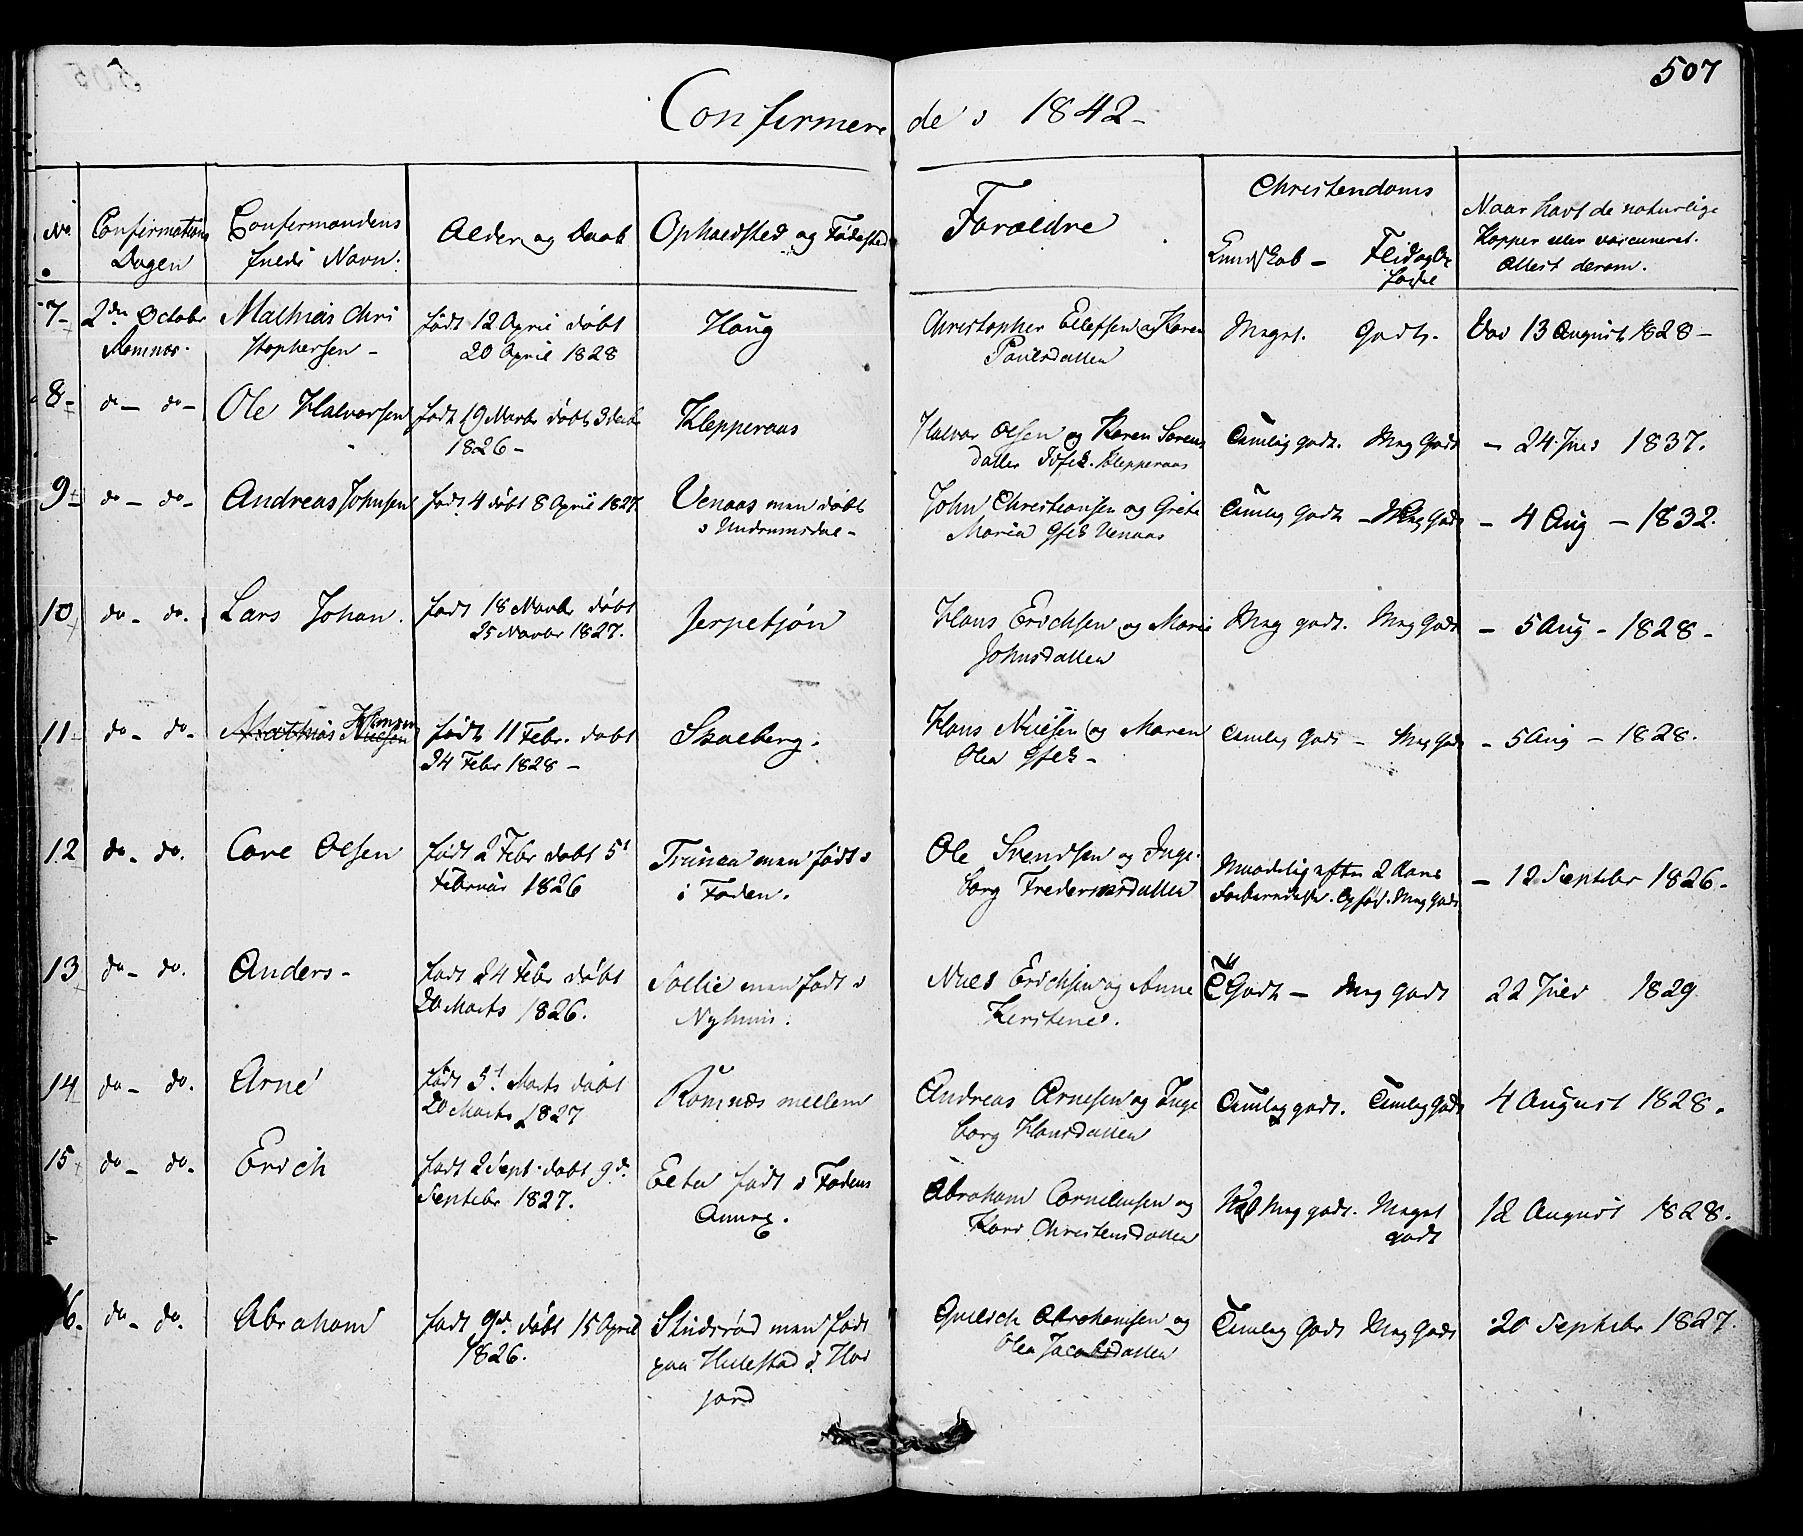 507
Confirmerede i 1842-
No
Confirmations
Dagen
Confirmandens
fulde Navn.
Alder og Daab
Opholdsted og Fødested
Forældre
Christendoms
Kundskab - Flid og Op
førsel
Naar havt de naturlige
Kopper eller vaccineret.
Attest derom.
7- 2den October
Ramnæs.
Mathias Chri
stophersen -
født 12 April døbt
20 April 1828
Haug
Christopher Ellefsen og Karen
Paulsdatter
Meget. Godt.
Vac 13 August 1828-
8- do- do-
Ole Halvorsen
født 19 Novbr døbt 3 Decbr
1826-
Klepperaas
Halvor Olsen og Karen Sørens
datter Klepperaas
Temlig godt. Meg Godt
- 24 Juli 1837.
9 do- do-
Andreas Johnsen
født 4 døbt 8 April 1827.
Venaas men døbt
i Undrumsdal-
John Christiansen og Grethe
Maria Venaas
Temlig Godt - Meg Godt
- 4 Aug - 1832.
10 do- do.
Lars Johan.
født 18 Novbr døbt
25 Novbr 1827.
Jerpetjøn
Hans Erichsen og Marie
Johnsdatter
Meg godt. Meg Godt
- 5 Aug - 1828-
11- do- do-
Mathias Nielsen
Hansen
født 11 Febr. døbt
24 Febr 1828-
Skaleberg.
Hans Nielsen og Maren
Olea
Temlig Godt - Meg Godt
- 5 Aug - 1828.
12 do- do.
Carl Olsen
født 2 Febr døbt 5t
Februar 1826
men født
i Foden.
Ole Svendsen og Inge-
borg Fredericksdatter
Maadelig efter 2 Aars
Forberedelse. Opførs. Meg Godt
- 12 Septebr 1826-
13 do- do.
Anders-
født 24 Febr døbt
20 Marts 1826.
Sollie men født i
Nyhuus.
Niels Erichsen og Anne
Kerstene.
T Godt - Meg godt
22 Juli 1829
14 do- do.
Arne
født 3t Marts døbt
20 Marts 1827
Ramnæs mellem
Andreas Arnesen og Inge
borg Hansdatter
Temlig godt. Temlig Godt
4 August 1828.
15 do- do.
Erich
født 2 Sept. døbt 9de
Septebr 1827.
født i Fodens
Annex.
Abraham Corneliusen og
Kari Christensdatter
Meg godt. Meget
godt
12 August 1828.
16. do- do.
Abraham
født 9de døbt 15 April
1826.
Skidsrød men født
paa Hulestad i Hov
jord
Gulich Abrahamsen og
Olea Jacobsdatter
Temlig Godt Meg Godt
20 Septebr 1827.